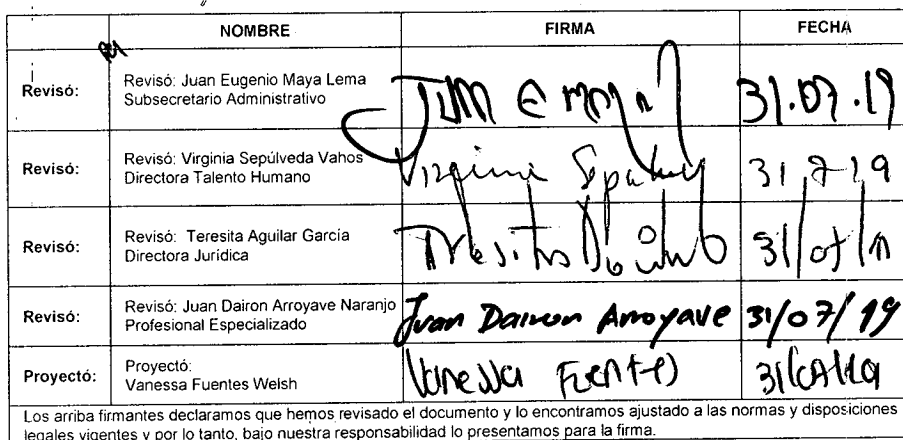 NOMBRE FIRMA FECHA
Revisó: Revisó: Juan Eugenio Maya Lema
Subsecretario Administrativo
31.07.19
Revisó: Revisó: Virginia Sepúlveda Vahos
Directora Talento Humano
Virginia 31 7 19
Revisó: Revisó: Teresita Aguilar García
Directora Jurídica
Teresita 31/07/19
Revisó: Revisó: Juan Dairon Arroyave Naranjo
Profesional Especializado
Juan Dairon Arroyave 31/07/19
Proyectó: Proyectó:
Vanessa Fuentes Welsh
Vanessa Fuentes
Los arriba firmantes declaramos que hemos revisado el documento y lo encontramos ajustado a las normas y disposiciones
legales vigentes y por lo tanto, bajo nuestra responsabilidad lo presentamos para la firma.